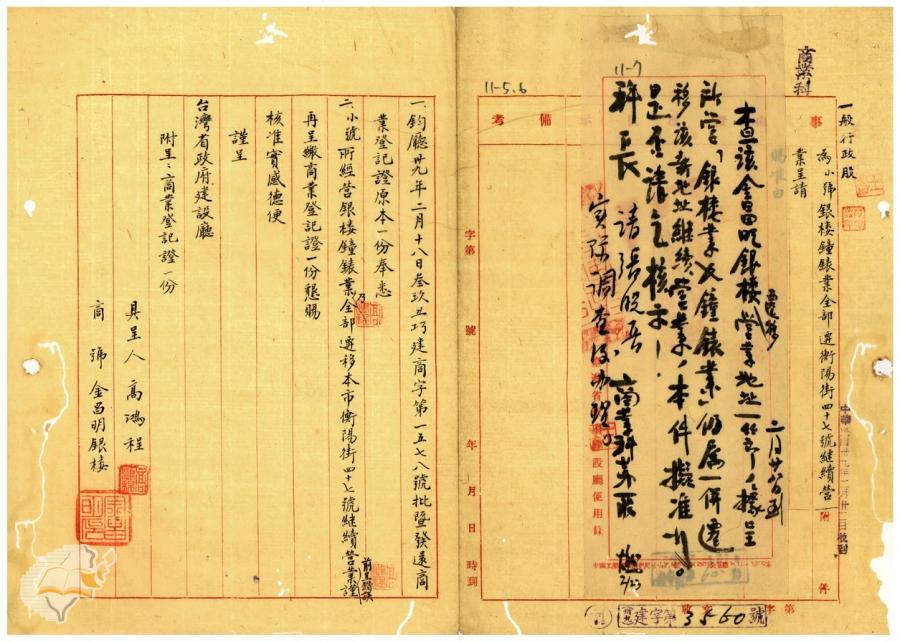 商業科
一般行政股
事
為小號銀楼鐘錶業全部遷衡陽街四十七號継續營
業呈請
賜准由
附 件
二月廿八日函
查該金昌明銀楼營業地址
遷移
一节,據呈
所营「銀楼業及鐘錶業」仍属一併遷
移该新地址継續营業,本件擬准
是否請乞核示!
科長 請張股長
實际調查後办理
商業科第一股
2/23
11-7
備 考
11-5.6
字第 號 年 月 日 時到
建字第3560號
一、鈞廳卅九年二月十八日叁玖丑巧建商字第一五七八號批暨發還商
業登記證原本一份奉悉
二、小號所經营銀楼
乃
鐘錶業全部遷移本市衡陽街四十七號継續营業謹
再呈繳商業登記證一份懇賜
核准實感德便
謹呈
台灣省政府建設廳
附呈:商業登記證一份
具呈人 高鴻程
商 號 金昌明銀楼